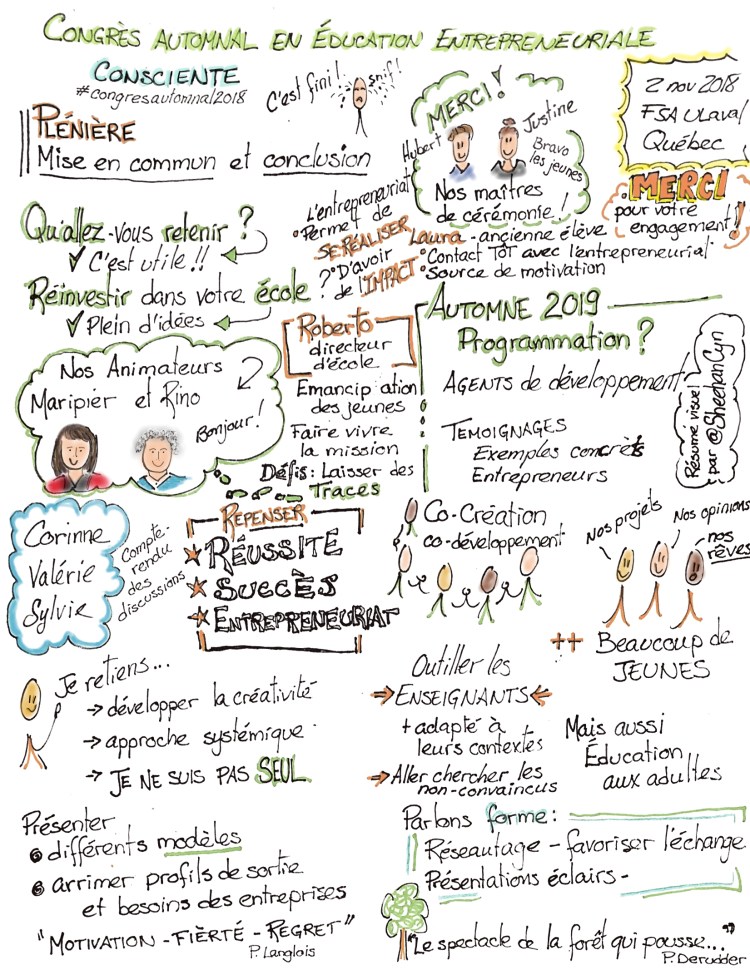 CONGRÈS AUTOMNAL EN ÉDUCATION ENTREPRENEURIALE
CONSCIENTE
#congresautomnal2018
C'est fini!
snif!
PLÉNIÈRE
Mise en commun et conclusion
MERCI!
Hubert
Justine
Bravo
les jeunes
Nos maîtres
de cérémonie!
2 nov 2018
FSA ULaval
Québec
MERCI
pour votre
engagement!
Qu'allez-vous retenir?
✓ C'est utile!!
Réinvestir dans votre école?
✓ Plein d'idées
L'entrepreneuriat
• Permet de
SE RÉALISER
• D'avoir
de l'IMPACT
Laura - ancienne élève
• Contact TÔT avec l'entrepreneuriat
• Source de motivation
Nos Animateurs
Maripier et Rino
Bonjour!
Roberto
directeur
d'école
Emancipation
des jeunes
Faire vivre
la mission
Défis: Laisser des
Traces
AUTOMNE 2019
Programmation?
AGENTS de développement
TEMOIGNAGES
Exemples concrèts
Entrepreneurs
Résumé visuel
par @SheehanCyn
Corinne
Valérie
Sylvie
Compte-
rendu
des
discussions
REPENSER
★ RÉUSSITE
★ SUCCÈS
★ ENTREPRENEURIAT
Co-Création
co-développement
Nos projets
Nos opinions
nos
rêves
++ BEAUCOUP de
JEUNES
Je retiens...
→ développer la créativité
→ approche systémique
→ JE NE SUIS PAS SEUL
Outiller les
→ ENSEIGNANTS ←
+ adapté à
leurs contextes
→ Aller chercher les
non-convaincus
Mais aussi
Éducation
aux adultes
Présenter
différents modèles
arrimer profils de sortie
et besoins des entreprises
"MOTIVATION - FIÈRTÉ - REGRET"
P. Langlois
Parlons forme:
Réseautage - favoriser l'échange
Présentations éclairs -
"Le spectacle de la forêt qui pousse..."
P. Derudder